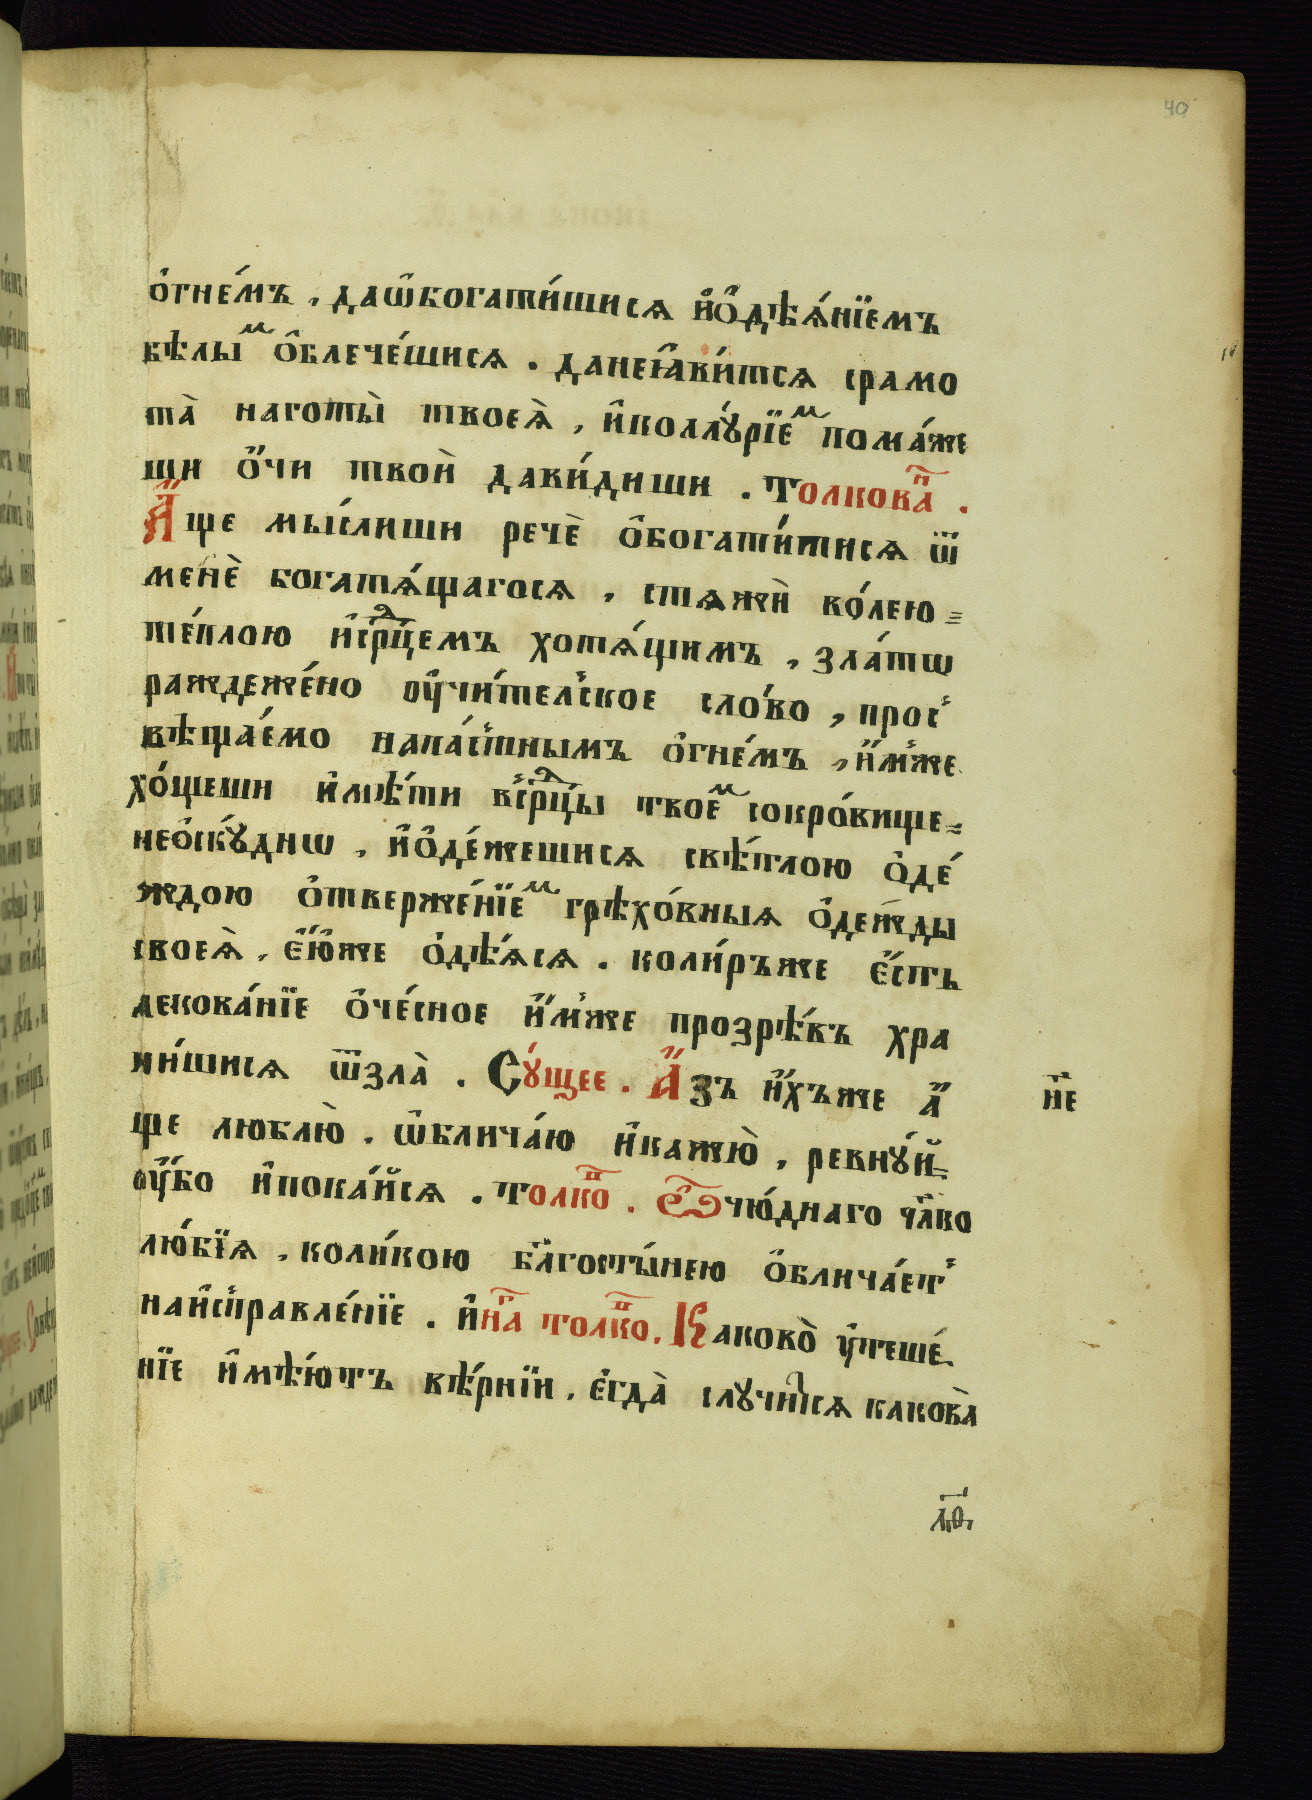 40
о҆гне́мъ , даѡ҆богати́шисѧ и҆ѻ҆дѣѧ́нїемъ
бѣлыⷨ ѡ҆блече́шисѧ . данеꙗ҆ви́тсѧ срамо
та̀ наготы̀ твоеѧ̀ , и҆коллѹ́рїеⷨ пома́же
ши ѻ҆́чи твоѝ дави́диши . Толковⷩ҇а .
А҆́ще мы́слиши речѐ ѻ҆богати́тисѧ ѿ
менѐ богатѧ́щагосѧ , стѧжѝ во́лею
те́плою и҆срⷣцемъ хотѧ́щимъ , зла́тѡ
раждеже́но ᲂу҆чи́телское сло́во , прос
вѣща́емо напа́стнымъ о҆гне́мъ , и҆́мже
хо́щеши и҆мѣ́ти всрⷣцы твоеⷨ сокро́вище
неѻ҆скꙋ́днѡ , и҆ѻ҆де́жешисѧ свѣ́тлою ѻ҆де́
ждою ѻ҆тверже́нїеⷨ грѣхо́вныѧ ѻ҆дежды
своеѧ̀ , е҆́юже ѻ҆дѣ́ѧсѧ . коли́ръже е҆́сть
лекова́нїе ѻ҆че́сное и҆́мже прозрѣ́въ хра
ни́шисѧ ѿзла̀ . Сꙋ́щее . А҆́зъ и҆́хъже а҆́
ще люблю̀ , ѡ҆блича́ю и҆кажю̀ , ревнꙋ́й
ᲂу҆́бо и҆пока́йсѧ . Толкоⷡ҇ . Ѽ чю́днаго чл҃ко
лю́бїѧ , коли́кою бл҃госты́нею ѻ҆блича́ет
наи҆справле́нїе . и҆нⷢ҇а толкоⷡ҇ . Каково̀ ᲂу҆теше́
нїе и҆мѣ́ютъ вѣ́рнїи , е҆гда̀ слꙋчи́тсѧ какова̀
н҃е
л҃ѳ